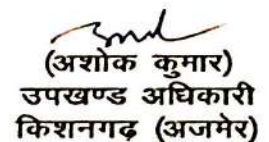 (अशोक कुमार)
उपखण्ड अधिकारी
किशनगढ़ (अजमेर)